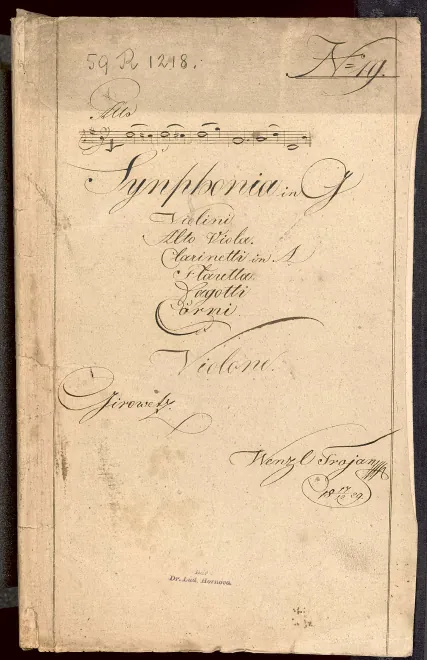 59 R 1218.
No 19.
Alto
Synphonia in G
Violini
Alto Viola.
Clarinetti in A
Flautta.
Fagotti
Corni.
Violone.
Girowetz.
Wenzl Trojan
18 17/10 09
Dar
Dr. Lud. Hornova.